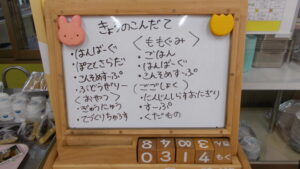 きょうのこんだて
・はんばーぐ
・ぽてとさらだ
・こんそめすーぷ
・ぶどうぜりー
<おやつ>
・ぎゅうにゅう
・てづくりちゅろす
<ももぐみ>
・ごはん
・はんばーぐ
・こんそめすーぷ
<ごごしょく>
・にんじんしらすおにぎり
・すーぷ
・くだもの
0 3 1 4 もく